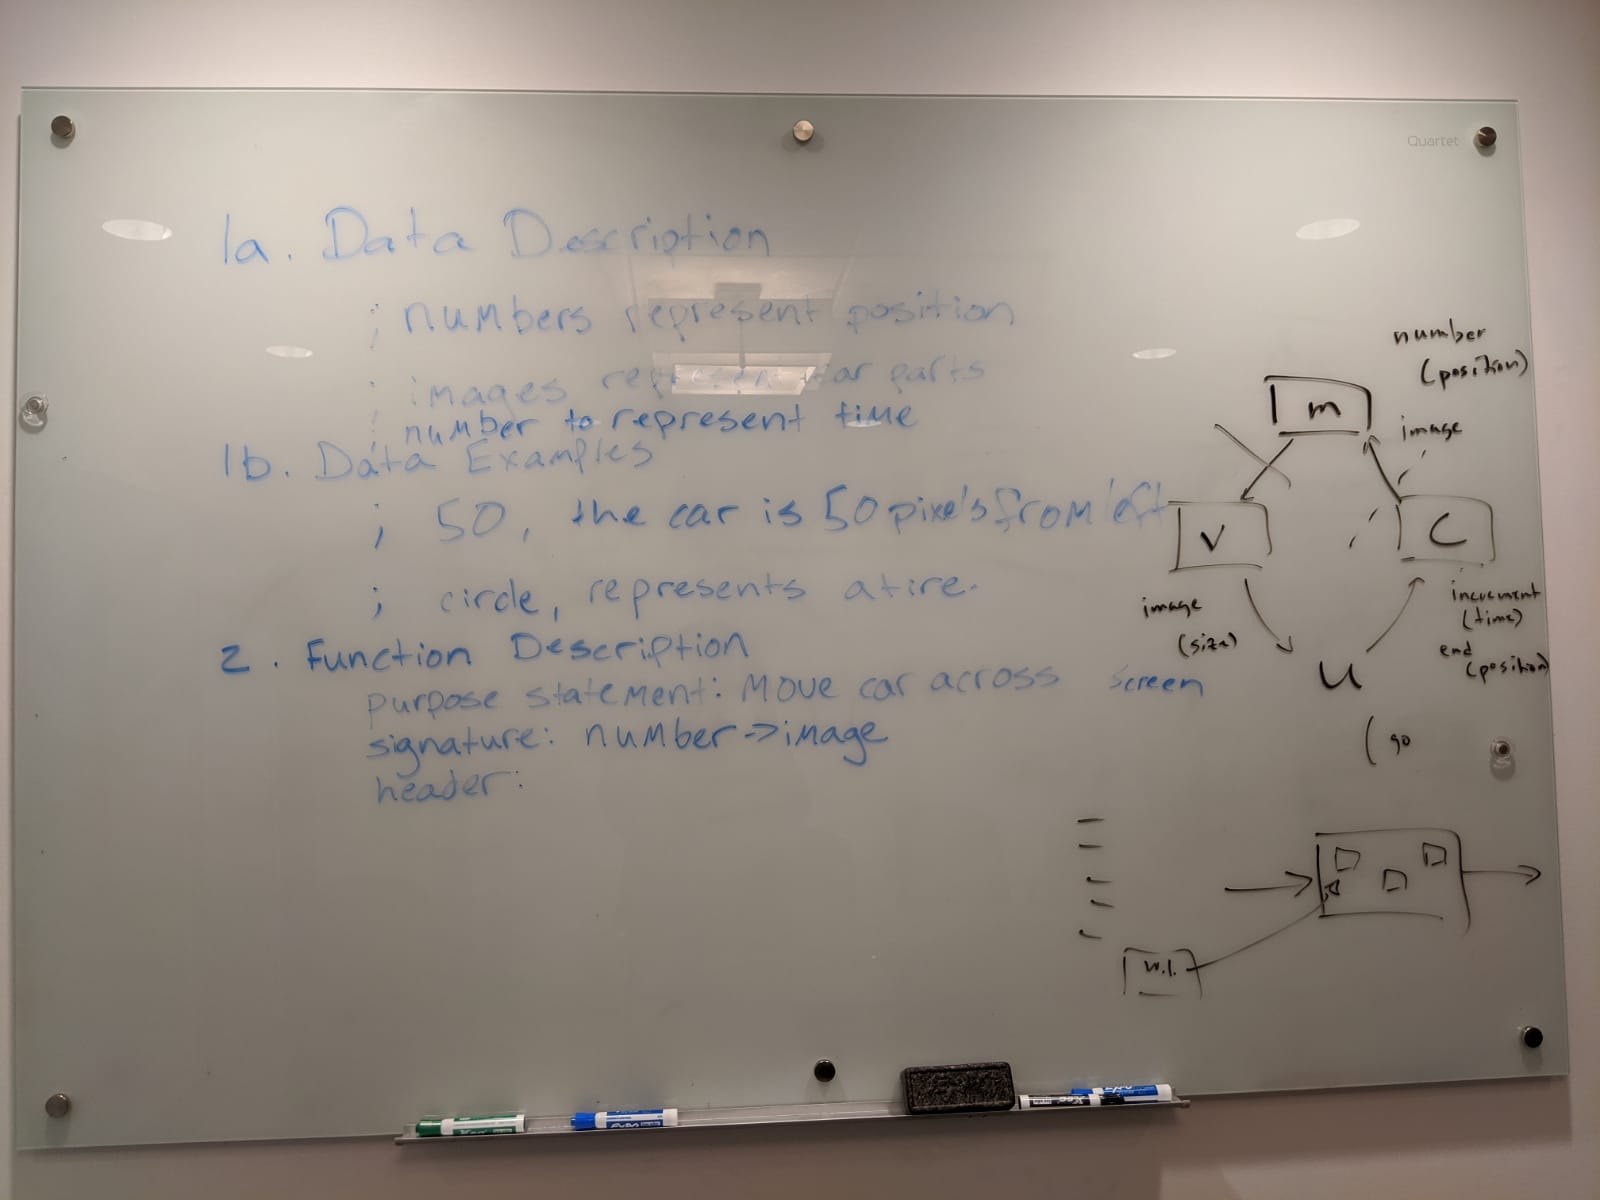 Quartet
1a. Data Description
; numbers represent position
; images represent car parts
; number to represent time
1b. Data Examples
; 50, the car is 50 pixels from left
; circle, represents a tire.
2. Function Description
purpose statement: Move car across screen
signature: number->image
header:
number
(position)
m
image
V
C
image
(size)
increment
(time)
end
(position)
U
(go
w.l.
EXPO